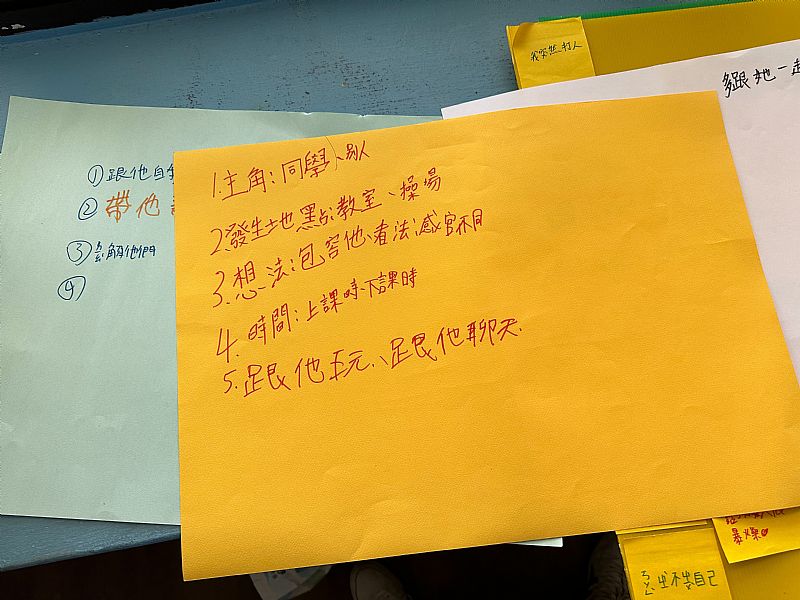 我突然打人
多跟她一起
①跟他自我
②帶他
③ㄌㄧㄠˇ解他們
④
1.主角:同學、別人
2.發生地點:教室、操場
3.想法:包容他、看法:感官不同
4.時間:上課時、下課時
5.跟他玩、跟他聊天.
暴燥
坐不住自己